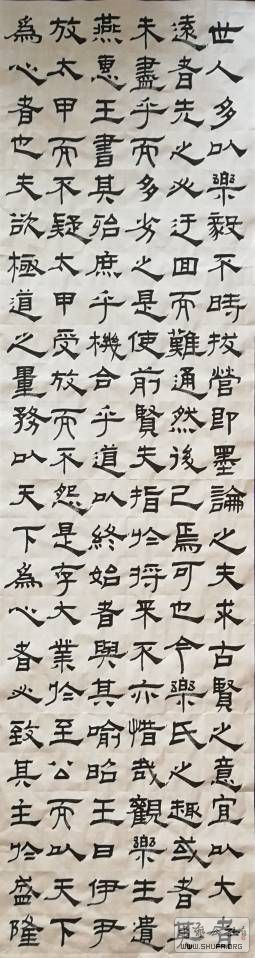 世人多以樂毅不時拔營即墨論之夫求古賢之意宜以大者
遠者先之必迂回而難通然後已焉可也今樂氏之趣或者其
未盡乎而多劣之是使前賢失指於將來不亦惜哉觀樂生遺
燕惠王書其殆庶乎機合乎道以終始者與其喻昭王曰伊尹
放太甲而不疑太甲受放而不怨是存大業於至公而以天下
為心者也夫欲極道之量務以天下為心者必致其主於盛隆
WWW.SHUFA.ORG